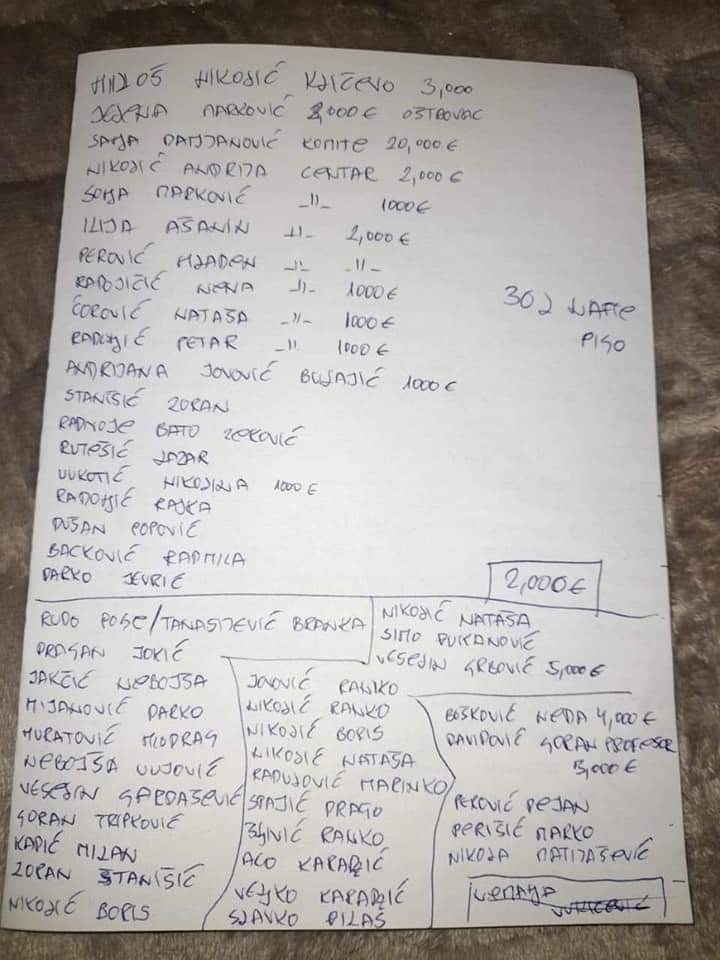 MILOŠ NIKOLIĆ KLIČEVO 3,000
JELENA MARKOVIĆ 2,000€ OSTROVAC
SANJA DAMJANOVIĆ KOMITE 20,000€
NIKOLIĆ ANDRIJA CENTAR 2,000€
SONJA MARKOVIĆ -11- 1000€
ILIJA AŠANIN -11- 2,000€
PEROVIĆ MLADEN -11- -11-
RADOJIČIĆ NENA -11- 1000€
ĆOROVIĆ NATAŠA -11- 1000€
RADONJIĆ PETAR -11- 1000€
ANDRIJANA JOVOVIĆ 1000€
STANIŠIĆ ZORAN
RADIVOJE BATO ZEKOVIĆ
RUTEŠIĆ LAZAR
VUKOTIĆ NIKOLINA 1000€
RADONJIĆ RAJKA
DUŠAN POPOVIĆ
BACKOVIĆ RADMILA
DARKO JEVRIĆ
30 L NAFTE
PISO
2,000€
RUDO POLJE/TANASIJEVIĆ BRANKA
DRAGAN JOKIĆ
JAKŠIĆ NEBOJŠA
MIJANOVIĆ DARKO
MURATOVIĆ MIODRAG
NEBOJŠA VUJOVIĆ
VESELIN GARDAŠEVIĆ
GORAN TRIPKOVIĆ
KAPIĆ MILAN
ZORAN STANIŠIĆ
NIKOLIĆ BORIS
NIKOLIĆ NATAŠA
SIMO VUKANOVIĆ
VESELIN GRBOVIĆ 5,000€
JOVOVIĆ RANKO
NIKOLIĆ RANKO
NIKOLIĆ BORIS
NIKOLIĆ NATAŠA
RADULOVIĆ MARINKO
SPAJIĆ DRAGO
RANKO
ACO KARADŽIĆ
VELJKO KARADŽIĆ
SLAVKO PILAŠ
BOŠKOVIĆ NEDA 4,000€
DAVIDOVIĆ GORAN PROFESOR
3,000€
PEROVIĆ DEJAN
PERIŠIĆ MARKO
NIKOLA MATIJAŠEVIĆ